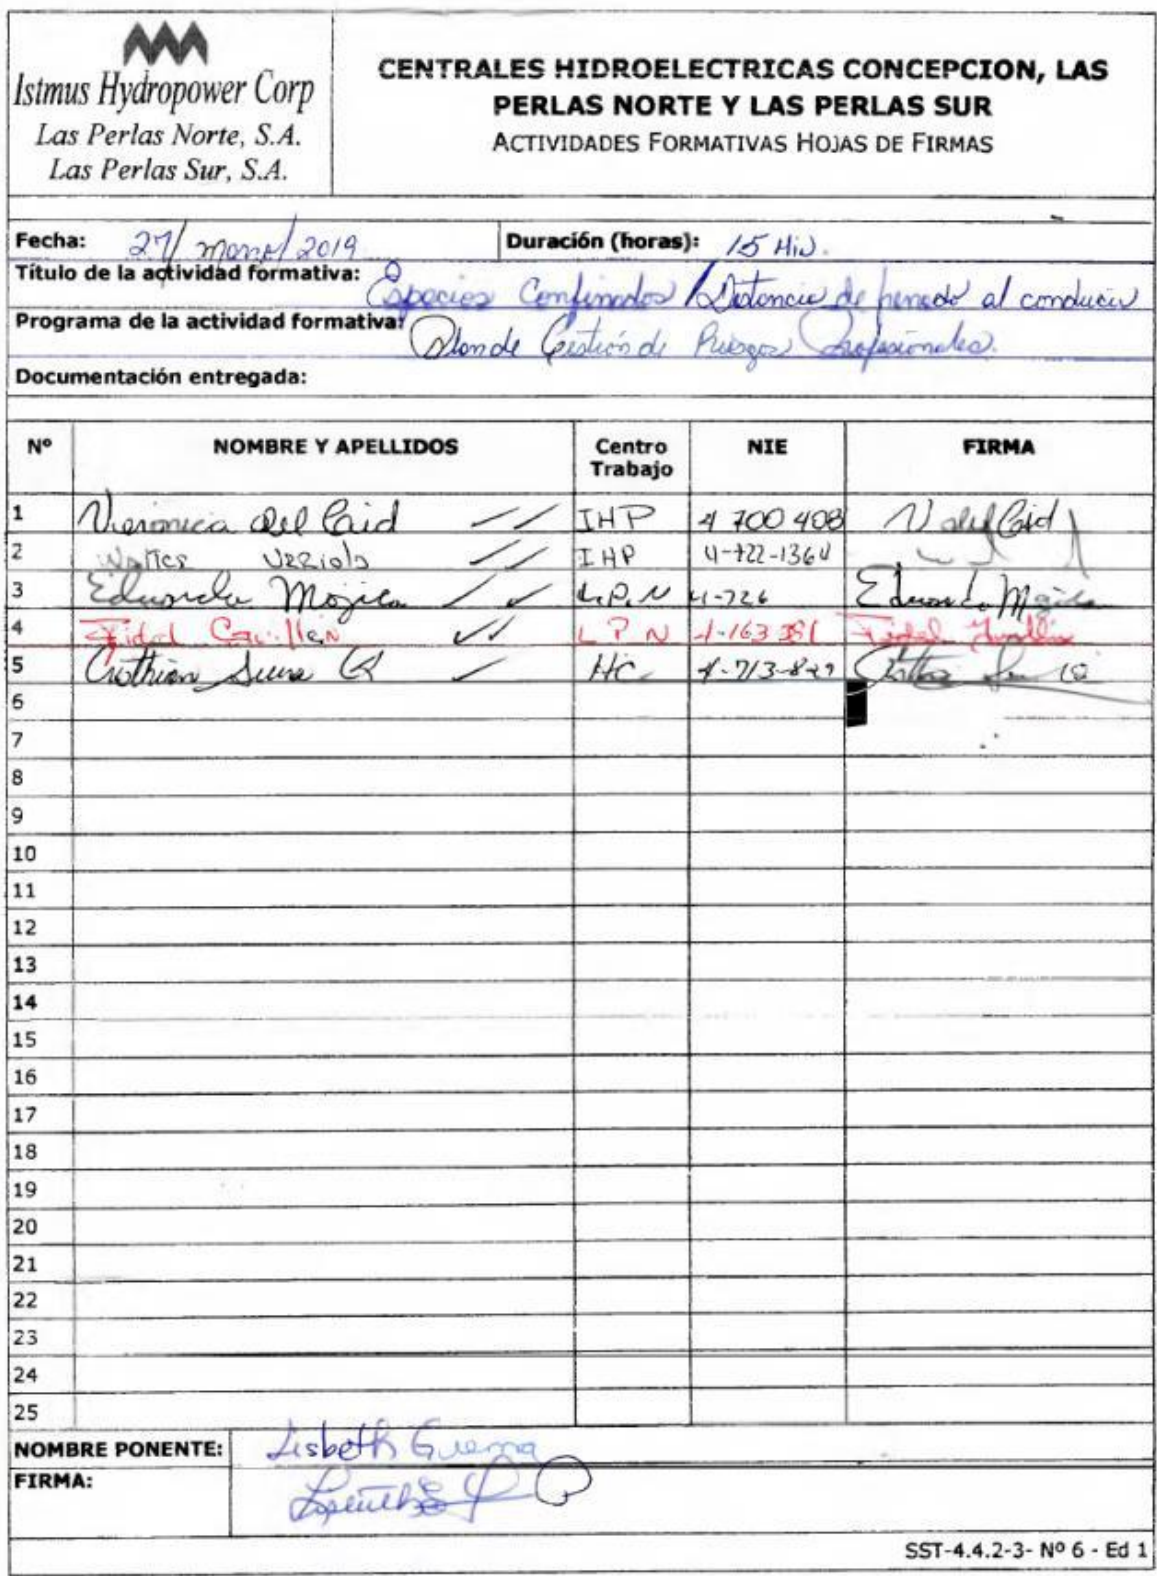 Istmus Hydropower Corp
Las Perlas Norte, S.A.
Las Perlas Sur, S.A.
CENTRALES HIDROELECTRICAS CONCEPCION, LAS
PERLAS NORTE Y LAS PERLAS SUR
ACTIVIDADES FORMATIVAS HOJAS DE FIRMAS
Fecha: 27/ /2019 Duración (horas): 15 Min.
Título de la actividad formativa: Espacios Confinados / Distancia de al conducir
Programa de la actividad formativa: Plan de Gestión de Riesgos Profesionales.
Documentación entregada:
Nº NOMBRE Y APELLIDOS Centro Trabajo NIE FIRMA
1 Veronica Del Cid IHP 4 700 408 V del Cid
2 IHP 4-722-1364
3 Eduardo Mojica L.P.N 4-726 Eduardo Mojica
4 Fidel L P N 4-163 381 Fidel
5 HC 4-713-829
6
7
8
9
10
11
12
13
14
15
16
17
18
19
20
21
22
23
24
25
NOMBRE PONENTE: Lisbeth Guerra
FIRMA:
SST-4.4.2-3- Nº 6 - Ed 1